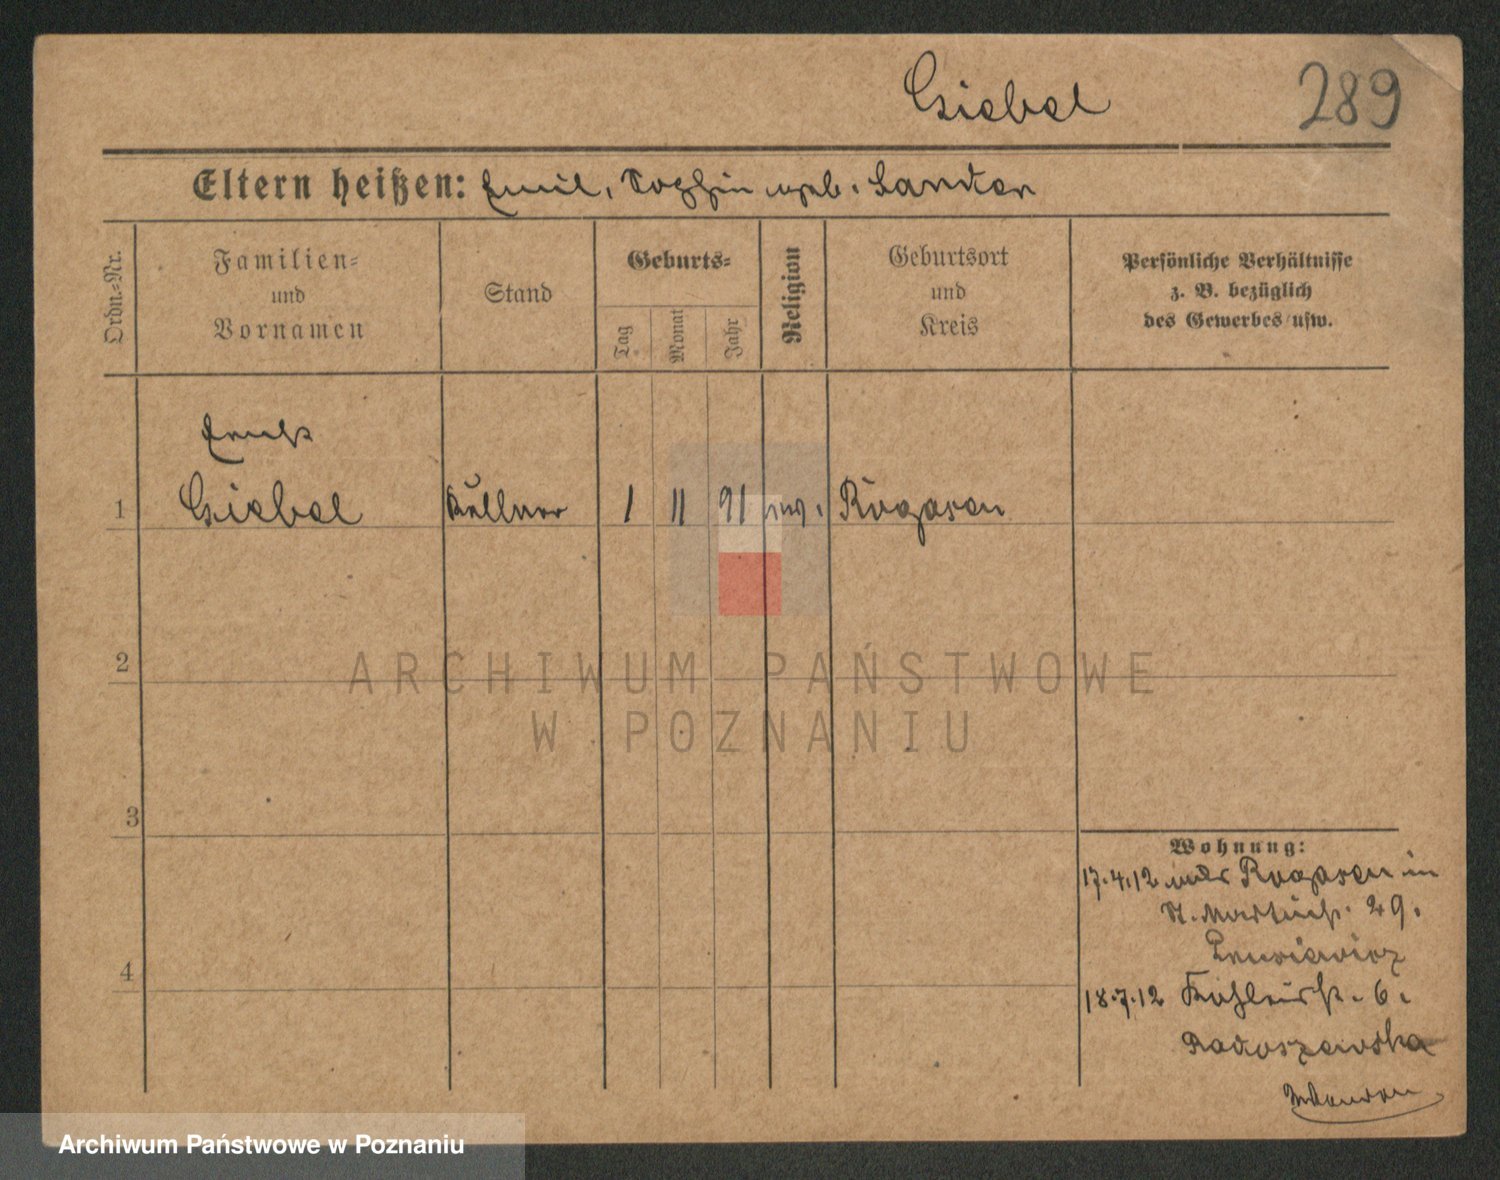 Giebel 289
Eltern heißen: Emil, Sophie geb. Sander
Ordn.=Nr.
Familien=
und
Vornamen
Stand
Geburts=
Tag
Monat
Jahr
Religion
Geburtsort
und
Kreis
Persönliche Verhältnisse
z. B. bezüglich
des Gewerbes usw.
Ernst
1 Giebel Kellner 1 11 91 Rogasen
2
3
4
Wohnung:
17.4.12 aus Rogasen in
St. Martinstr. 29.
18.7.12 6.
Radoszewska
ARCHIWUM PAŃSTWOWE
W POZNANIU
Archiwum Państwowe w Poznaniu